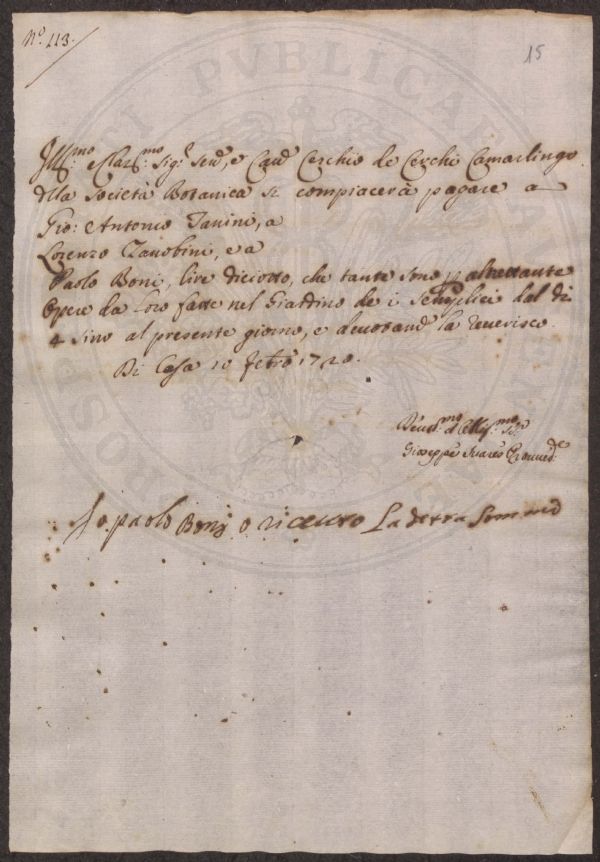 Nº. 113.
15
Ill:mo e Clar:mo Sig:r Sen:e, e Cav:e Cerchio de Cerchi Camarlingo
della Società Botanica si compiacerà pagare a
Gio: Antonio Nanini, a
Lorenzo Zanobini, e a
Paolo Boni, lire diciotto, che tante sono p altrettante
Opere da loro fatte nel Giardino de i Semplici dal dì
4 sino al presente giorno, e devotam:e la reverisco.
Di Casa 10 Febro 1720.
Giuseppe Suares Provved:e
Io paolo Boni o riceuto La detta Somma